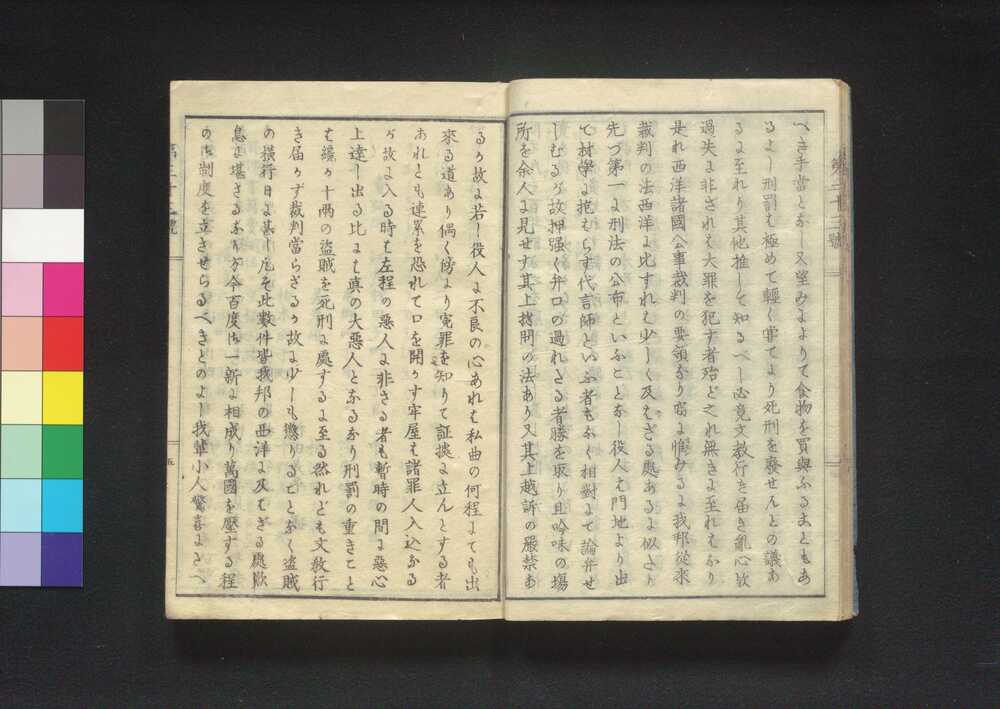 べき手當となし又望みによりて食物を買與ふるまともあ
るよし刑罰も極めて輕く嘗てより死刑を癈せんとの議あ
るに至れり其他推して知るべし必竟文教行き届き亂心歟
過失に非されバ大罪を犯す者殆どこれ無きに至れバなり
是れ西洋諸國公事裁判の要領なり窃に惟みるに我邦從來
裁判の法西洋に比すれバ少しく及バざる處あるに似たり
先づ第一に刑法の公布といふことなし役人ハ門地より出
で材學に抱ハらす代言師といふ者もなく相對にて論弁せ
しむるが故押強く弁口の過れたる者勝を取り且吟味の塲
所を余人に見せす其上拷問の法あり又其上越訴の嚴禁あ
るが故に若し役人に不良の心あれバ私曲の何程にても出
來る道あり偶く傍より寃罪を知りて証據に立んとする者
あれとも連累を恐れて口を開かす牢屋ハ諸罪人入込なる
が故に入る時ハ左程の惡人に非さる者も暫時の間に惡心
上達し出る比にハ真の大惡人となるなり刑罰の重きこと
ハ纔か十兩の盗賊を死刑に處するに至る然れども文教行
き届かず裁判當らざるが故に少しも懲りることなく盗賊
の横行日に甚し凡そ此数件皆我邦の西洋に及バざる處歎
息に堪さるなりが今百度御一新に相成り萬國を壓する程
の御制度を立させらるべきとのよし我輩小人驚喜にたへ
第二十三號
第二十三號
五